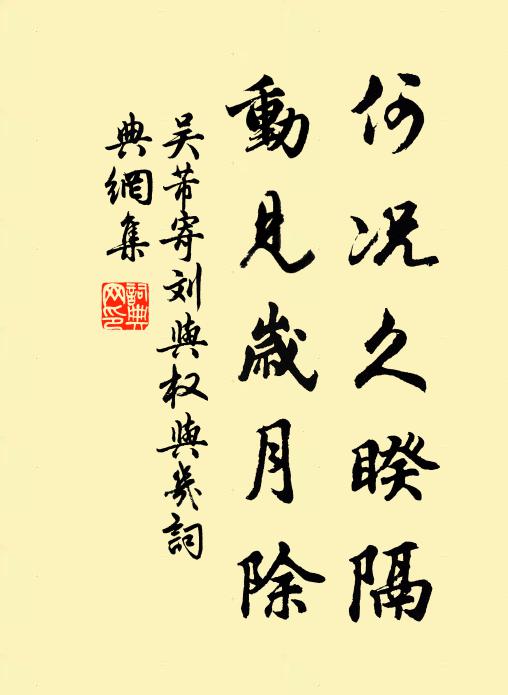 何况久暌隔
動見歲月除
吴芾寄刘與权與几詞
典網集
詞典
网印